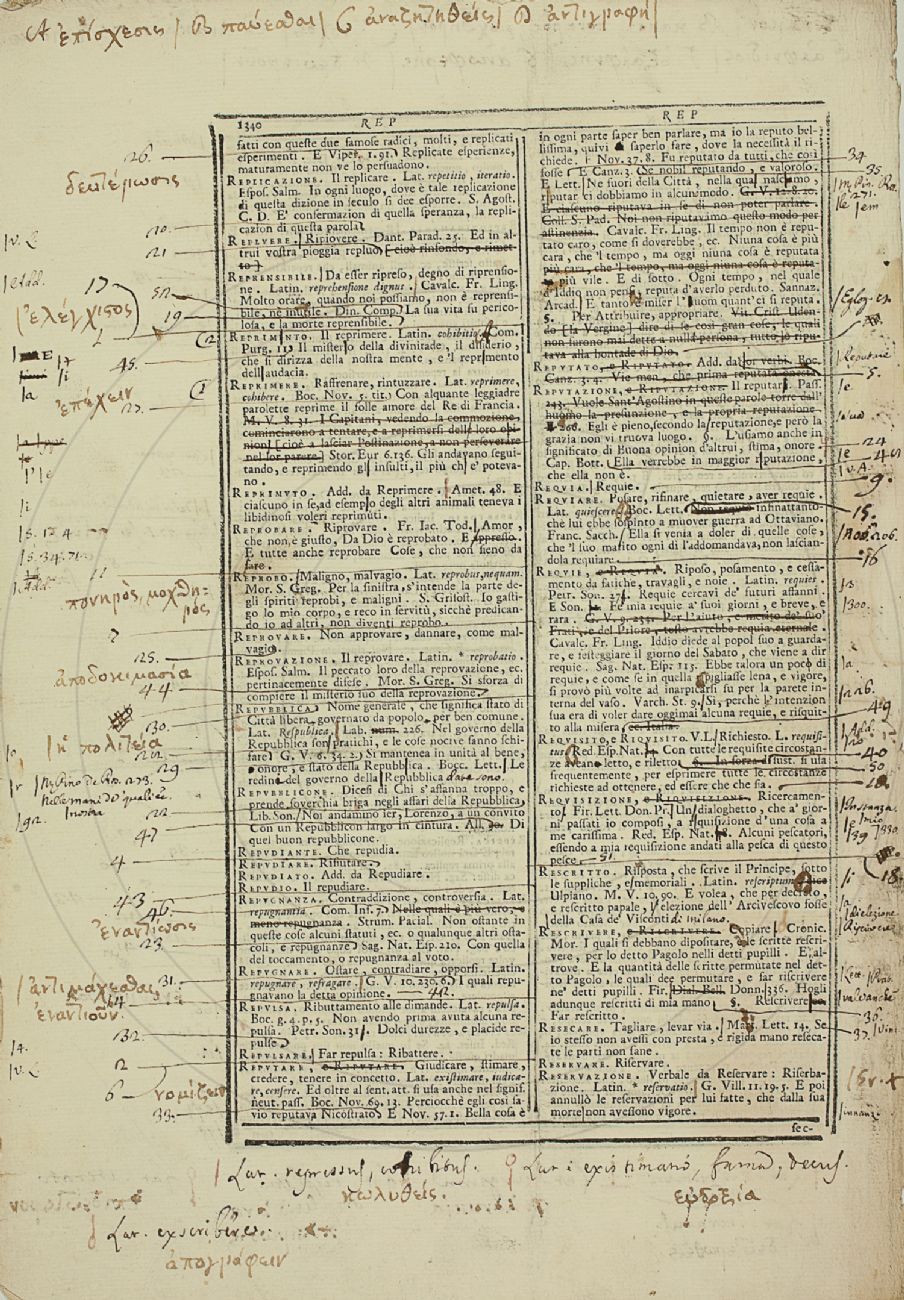 A ἐπίσχεσις | B παύεσθαι | C ἀναζητηθείς | D ἀντιγραφή |
1340 REP
REP
satti con queste due famose radici, molti, e replicati
esperimenti. E Viper. 1. 91. Replicate esperienze,
maturamente non ve lo persuadono.
REPLICAZIONE. Il replicare. Lat. repetitio, iteratio.
Espos. Salm. In ogni luogo, dove è tale replicazione
di questa dizione in seculo si dee esporre. S. Agost.
C. D. E' confermazion di quella speranza, la repli-
cazion di questa parola
REPLUERE. Ripiovere. Dant. Parad. 25. Ed in al-
trui vostra pioggia repluo (cioè rinfondo, e rimet-
to)
REPRENSIBILE. Da esser ripreso, degno di riprensio-
ne. Latin. reprehensione dignus. Cavalc. Fr. Ling.
Molto orare, quando noi possiamo, non è reprensi-
bile, nè inutile. Din. Comp. La sua vita fu perico-
losa, e la morte reprensibile.
REPRIMENTO. Il reprimere. Latin. cohibitio. Com.
Purg. 11. Il misterio della divinitade, il disiderio,
che si dirizza della nostra mente, e 'l reprimento
dell'audacia.
REPRIMERE. Raffrenare, rintuzzare. Lat. reprimere,
cohibere. Boc. Nov. 5. tit. Con alquante leggiadre
parolette reprime il folle amore del Re di Francia.
M. V. 8. 31. I Capitani, vedendo la commozione,
cominciarono a tentare, e a reprimersi delle loro opi-
nioni (cioè a lasciar l'ostinazione, a non perseverare
nel lor parere) Stor. Eur. 6. 136. Gli andavano segui-
tando, e reprimendo gl' insulti, il più ch' e' poteva-
no.
REPRIMUTO. Add. da Reprimere. Amet. 48. E
ciascuno in se, ad esemplo degli altri animali teneva i
libidinosi voleri reprimuti.
REPROBARE. Riprovare. Fr. Iac. Tod. Amor,
che non, è giusto, Da Dio è reprobato. E appresso.
E tutte anche reprobare Cose, che non sieno da
fare.
REPROBO. Maligno, malvagio. Lat. reprobus, nequam.
Mor. S. Greg. Per la sinistra s'intende la parte de-
gli spiriti reprobi, e maligni. S. Grisost. Io gasti-
go lo mio corpo, e reco in servitù, sicchè predican-
do io ad altri, non diventi reprobo.
REPROVARE. Non approvare, dannare, come mal-
vagio.
REPROVAZIONE. Il reprovare. Latin. * reprobatio.
Espos. Salm. Il peccato loro della reprovazione, ec.
pertinacemente difese. Mor. S. Greg. Si sforza di
compiere il misterio suo della reprovazione.
REPUBBLICA. Nome generale, che significa stato di
Città libera, governato da popolo, per ben comune.
Lat. Respublica. Lab. num. 226. Nel governo della
Repubblica son pratichi, e le cose nocive sanno schi-
fare. G. V. 6. 34. 2. Si mantenea in unità al bene,
e onore, e stato della Repubblica. Bocc. Lett. Le
redine del governo della Repubblica date sono.
REPUBBLICONE. Dicesi di Chi s'affanna troppo, e
prende soverchia briga negli affari della Repubblica,
Lib. Son. Noi andammo ier, Lorenzo, a un convito
Con un Repubblicon largo in cintura. All. 30. Di
quel buon repubblicone.
REPUDIANTE. Che repudia.
REPUDIARE. Rifiutare.
REPUDIATO. Add. da Repudiare.
REPUDIO. Il repudiare.
REPUGNANZA. Contraddizione, controversia. Lat.
repugnantia. Com. Inf. 7. Nelle quali è più vero, e
meno repugnanza. Strum. Pacial. Non ostante in
queste cose alcuni statuti, ec. o qualunque altri osta-
coli, e repugnanze. Sag. Nat. Esp. 210. Con quella
del toccamento, o repugnanza al voto.
REPUGNARE. Ostare, contradiare, opporsi. Latin.
repugnare, refragare. G. V. 10. 230. 6. I quali repu-
gnavano la detta opinione.
REPULSA. Ributtamento alle dimande. Lat. repulsa.
Boc. g. 4. p. 5. Non avendo prima avuta alcuna re-
pulsa. Petr. Son. 31. Dolci durezze, e placide re-
pulse
REPULSARE. Far repulsa: Ribattere.
REPUTARE, e RIPUTARE. Giudicare, stimare,
credere, tenere in concetto. Lat. existimare, iudica-
re, censere. Ed oltre al sent. att. si usa anche nel signif.
neut. pass. Boc. Nov. 69. 13. Perciocchè egli così sa-
vio reputava Nicostrato. E Nov. 57. 1. Bella cosa è
in ogni parte saper ben parlare, ma io la reputo bel-
lissima, quivi saperlo fare, dove la necessità il ri-
chiede. Nov. 37. 8. Fu reputato da tutti, che così
fosse E Canz. 3. Se nobil reputando, e valoroso.
E Lett. Ne fuori della Città, nella qual nasciamo,
riputar ci dobbiamo in alcun modo. G. V. 12. 8. 20.
E ciascuno riputava in se di non poter parlare.
Coll. S. Pad. Noi non riputavimo questo modo per
astinenzia. Cavalc. Fr. Ling. Il tempo non è repu-
tato caro, come si doverebbe, ec. Niuna cosa è più
cara, che 'l tempo, ma oggi niuna cosa è reputata
più cara, che 'l tempo, ma oggi niuna cosa è reputa-
ta più vile. E di sotto. Ogni tempo, nel quale
d'Iddio non pensi, reputa d'averlo perduto. Sannaz.
Arcad. E tanto è miser l'uom quant'ei si reputa.
§. Per Attribuire, appropriare. Vit. Crist. Uden-
do (la Vergine) dire di se così gran cose, le quali
non furono mai dette a nulla persona, tutto lo ripu-
tava alla bontade di Dio.
REPUTATO, e RIPUTATO. Add. da' lor verbi. Boc.
Canz. 3. 4. Vie men, che prima reputata onesta
REPUTAZIONE, e RIPUTAZIONE. Il reputare. Pass.
243. Vuole Sant'Agostino in queste parole torre dall'
huomo la presunzione, e la propria reputazione
E 266. Egli è pieno, secondo la reputazione, e però la
grazia non vi truova luogo. §. L'usiamo anche in
significato di Buona opinion d'altrui, stima, onore.
Cap. Bott. Ella verrebbe in maggior riputazione,
che ella non è.
REQUIA. Requie.
REQUIARE. Posare, rifinare, quietare, aver requie.
Lat. quiescere. Boc. Lett. Non requiò infinattanto-
chè lui ebbe sospinto a muover guerra ad Ottaviano.
Franc. Sacch. Ella si venia a doler di quelle cose,
che 'l suo marito ogni dì l'addomandava, non lascian-
dola requiare.
REQUIE, e REQUIA. Riposo, posamento, e cessa-
mento da fatiche, travagli, e noie. Latin. requies.
Petr. Son. 275. Requie cercavi de' futuri affanni.
E Son. Fe mia requie a' suoi giorni, e breve, e
rara. G. V. 9. 231. Per l'aiuto, e merito de' suo'
Frati, e del Priore, testo avrebbe requia eternale.
Cavalc. Fr. Ling. Iddio diede al popol suo a guarda-
re, e festeggiare il giorno del Sabato, che viene a dir
requie. Sag. Nat. Esp. 115. Ebbe talora un poco di
requie, e come se in quella pigliasse lena, e vigore,
si provò più volte ad inarpicarsi su per la parete in-
terna del vaso. Varch. St. 9. Sì, perchè l'intenzion
sua era di voler dare oggimai alcuna requie, e risquit-
to alla misera
REQUISITO, e RIQUISITO. V.L. Richiesto. L. requisi-
tus. Red. Esp. Nat. Con tutte le requisite circostan-
ze aveano letto, e riletto
frequentemente, per esprimere tutte le circostanze
richieste ad ottenere, ed essere che che sia.
REQUISIZIONE, e RIQUISIZIONE. Ricercamen-
to. Fir. Lett. Don. Pr. Un dialoghetto, che a' gior-
ni passati io composi, a requisizione d'una cosa a
me carissima. Red. Esp. Nat. 18. Alcuni pescatori,
essendo a mia requisizione andati alla pesca di questo
pesce.
RESCRITTO. Risposta, che scrive il Principe, sotto
le suppliche, e memoriali. Latin. rescriptum dice
Ulpiano. M. V. 10. 90. E volea, che per decreto,
e rescritto papale, l'elezione dell' Arcivescovo fosse
della Casa de' Visconti di Milano.
RESCRIVERE, e RISCRIVERE. Copiare. Cronic.
Mor. I quali si debbano dipositare, e le scritte rescri-
vere, per lo detto Pagolo nelli detti pupilli. E al-
trove. E la quantità delle scritte permutate nel det-
to Pagolo, le quali dee permutare, e far riscrivere
ne' detti pupilli. Fir. Dial. Bell. Donn. 336. Hogli
adunque rescritti di mia mano §. Rescrivere
Far rescritto.
RESECARE. Tagliare, levar via. Mag. Lett. 14. Se
io stesso non avessi con presta, e rigida mano reseca-
te le parti non sane.
RESERVARE. Riservare.
RESERVAZIONE. Verbale da Reservare: Riserba-
zione. Latin. * reservatio. G. Vill. 11. 19. 5. E poi
annullò le reservazioni per lui fatte, che dalla sua
morte non avessono vigore.
sec-
26.
δευτέρωσις
20.
21
17
52
19
45.
ἐπέχειν
27.
πονηρός, μοχθη-
ρός
25.
ἀποδοκιμασία
44
30.
ἡ πολιτεία
29
22
47
4
43
46.
ἐναντίωσις
23.
31.
ἀντιμάχεσθαι
ἐναντιοῦν
32.
2
6 νομίζειν
33.
34
35
5.
24
45
9.
15.
16
300.
49
40
50
28
51.
18.
36.
37.
Lat. regressus, cohibitus.
κωλυθείς.
Lat. existimatio, fama, decus.
εὐδοξία
Lat. exscribere.
ἀπογράφειν